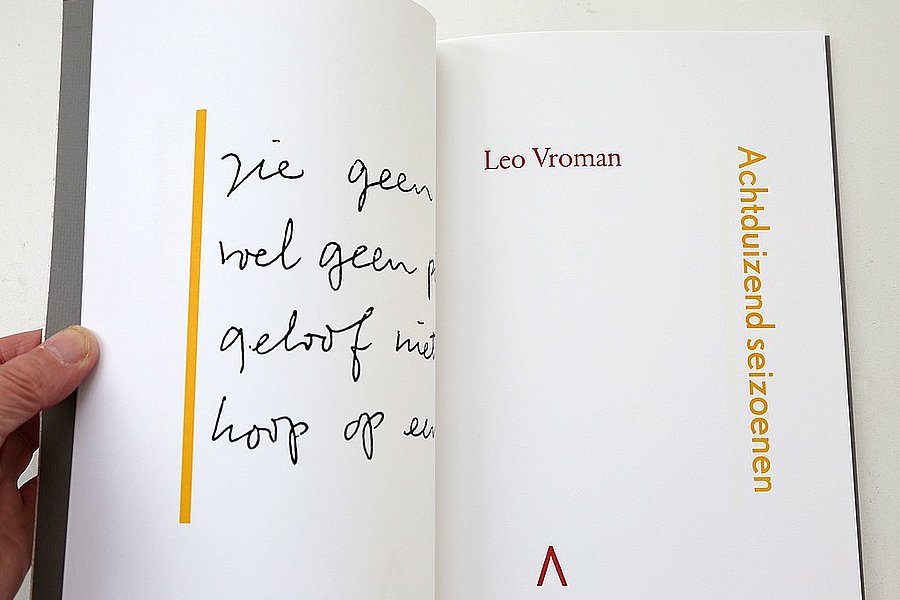 zie geen
wel geen
geloof niet
hoop op
Leo Vroman
Achtduizend seizoenen